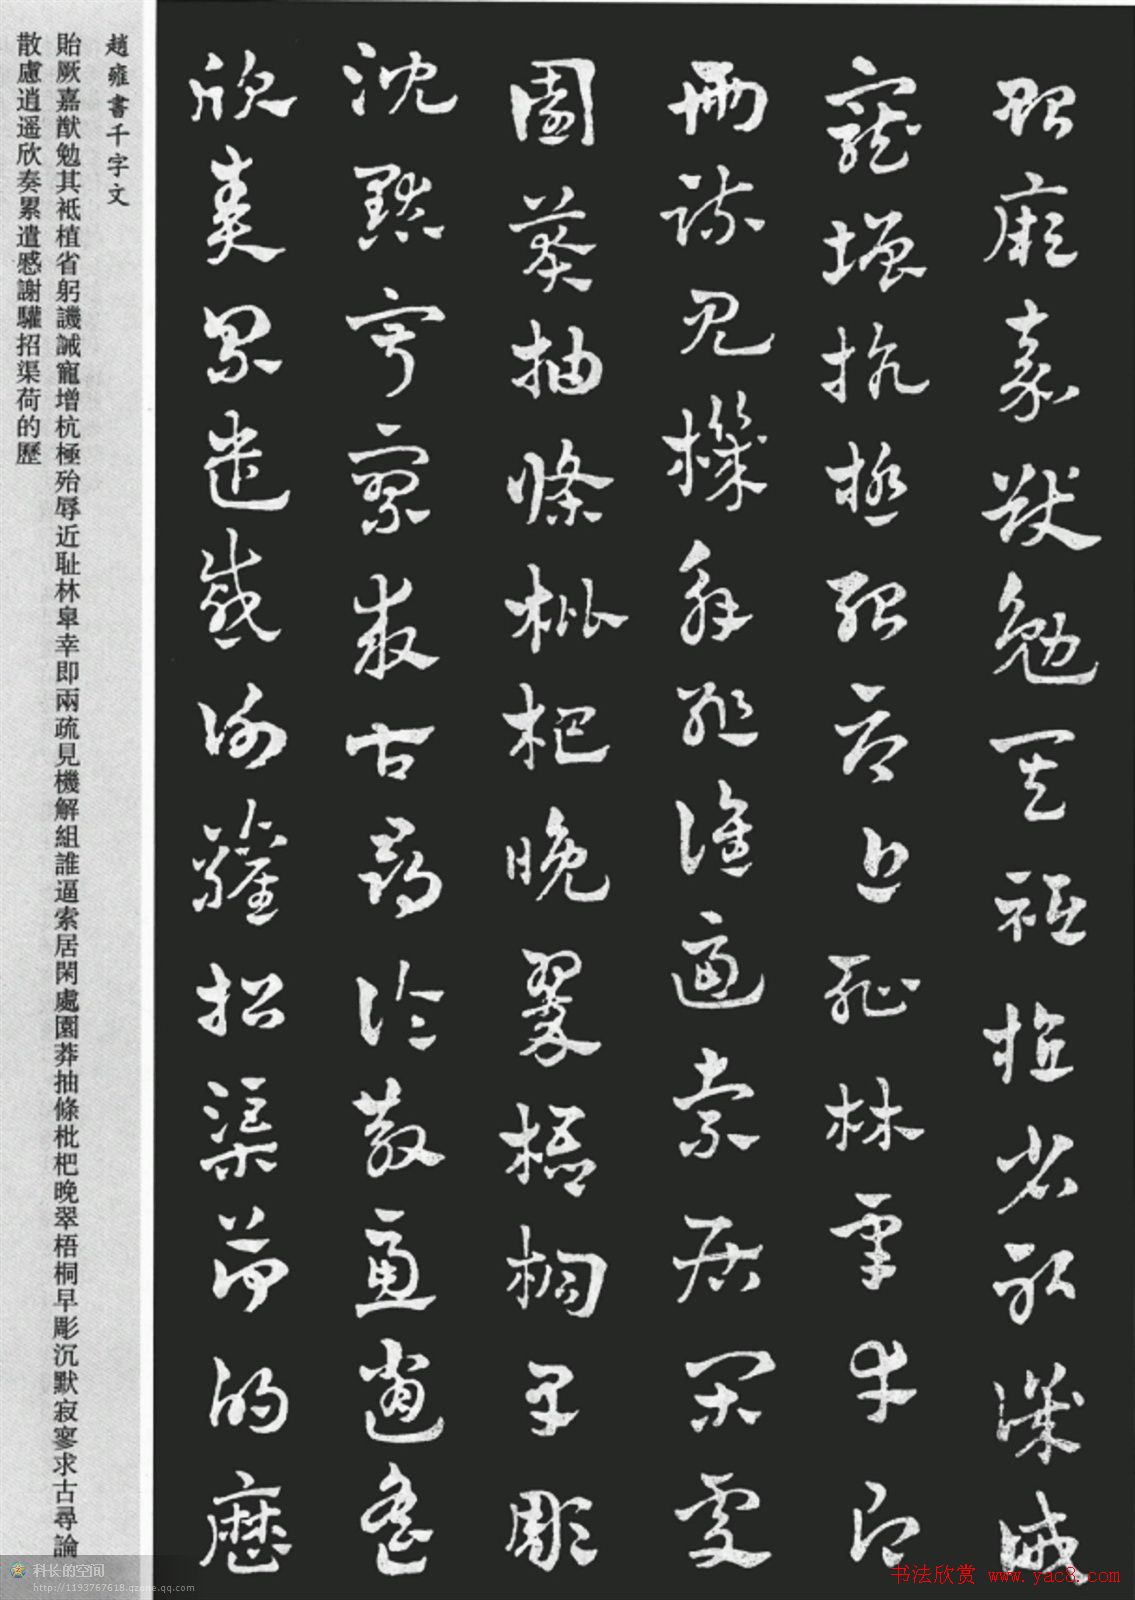 貽厥嘉猷勉其祗植省躬譏誡
寵增抗極殆辱近恥林皋幸即
兩疏見機解組誰逼索居閑處
園莽抽條枇杷晚翠梧桐早彫
沈默寂寥求古尋論散慮逍遙
欣奏累遣慼謝驩招渠荷的歷
趙雍書千字文
貽厥嘉猷勉其袛植省躬譏誡寵增杭極殆辱近耻林皐幸即兩疏見機解組誰逼索居閑處園莽抽條枇杷晚翠梧桐早彫沉默寂寥求古尋論
散慮逍遥欣奏累遣慼謝驩招渠荷的歷
科长的空间
http://1193767618.qzone.qq.com
书法欣赏 www.yac8.com